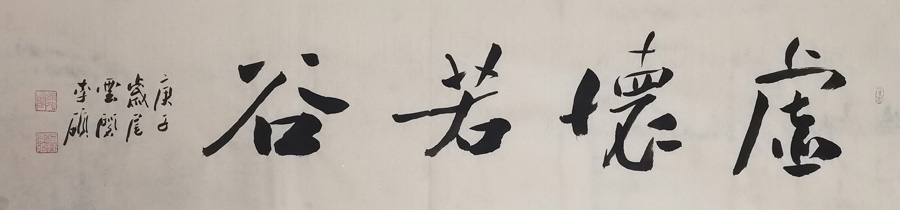 虛懷若谷
庚子
歲尾
雲閣
李碩